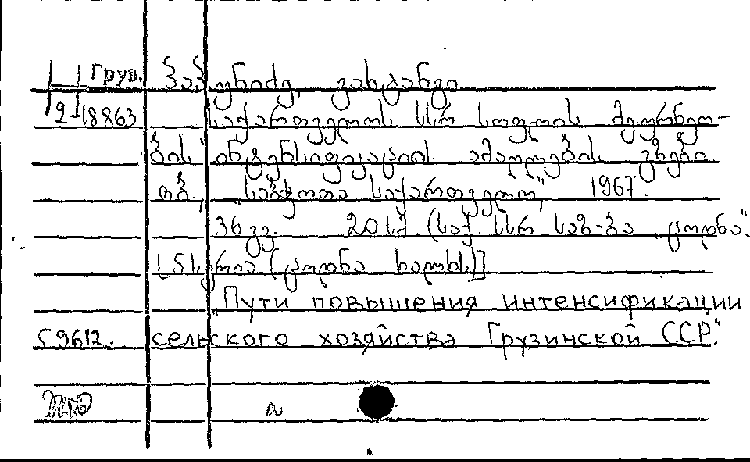 Груз. პაპუნიძე, ვახტანგი
2-18863 საქართველოს სსრ სოფლის მეურნეო-
ბის ინტენსიფიკაციის ამაღლების გზები.
თბ., "საბჭოთა საქართველო", 1967.
36 გვ. 20 სმ. (საქ. სსრ საზ-ბა "ცოდნა".
[5] სერია (ცოდნა ხალხს)]
"Пути повышения интенсификации
С9612. сельского хозяйства Грузинской ССР".